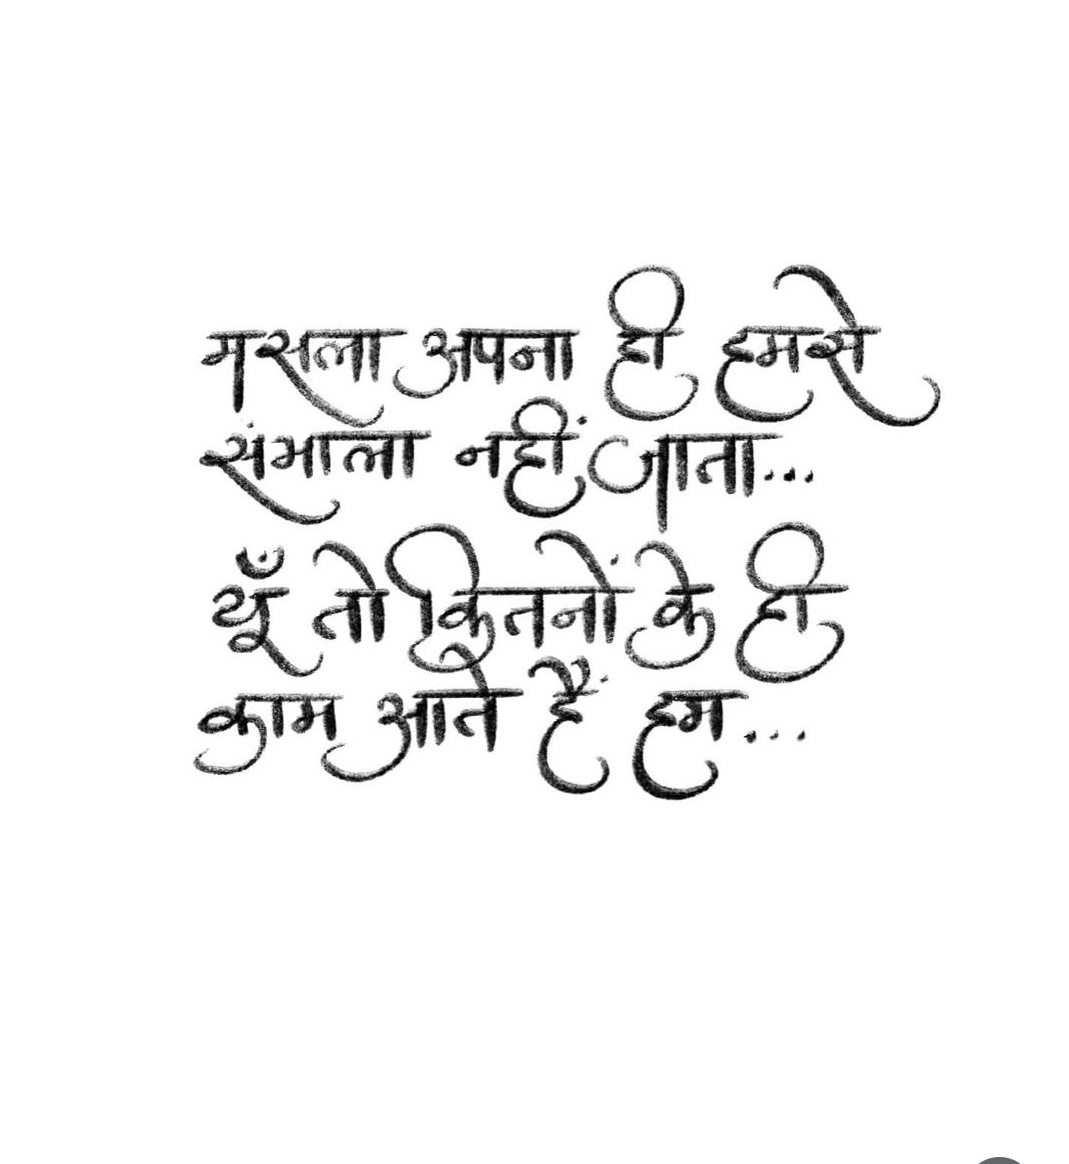 मसला अपना ही हमसे
संभाला नहीं जाता...
यूँ तो कितनों के ही
काम आते हैं हम...